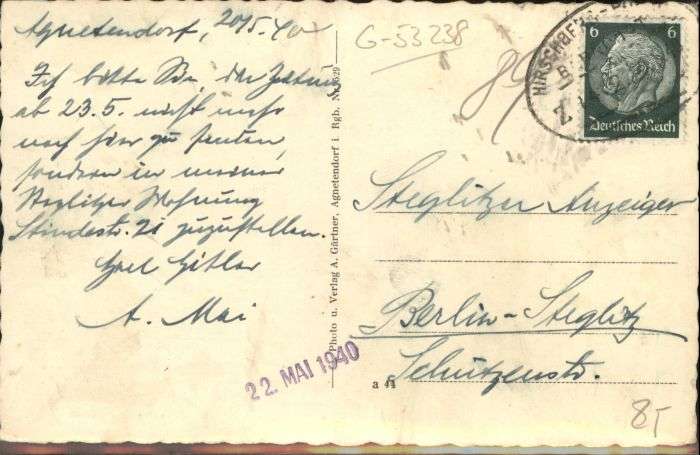 Agnetendorf, 20/5.40
Ich bitte Sie, die Zeitung
ab 23.5. nicht mehr
nach hier zu senden,
sondern in meiner
Steglitzer Wohnung
Stindestr. 21 zuzustellen.
Heil Hitler
A. Mai
22. MAI 1940
Photo u. Verlag A. Gärtner, Agnetendorf i Rgb.
G-53238
6 6
Deutsches Reich
Steglitzer Anzeiger
Berlin-Steglitz
Schützenstr.
a 44